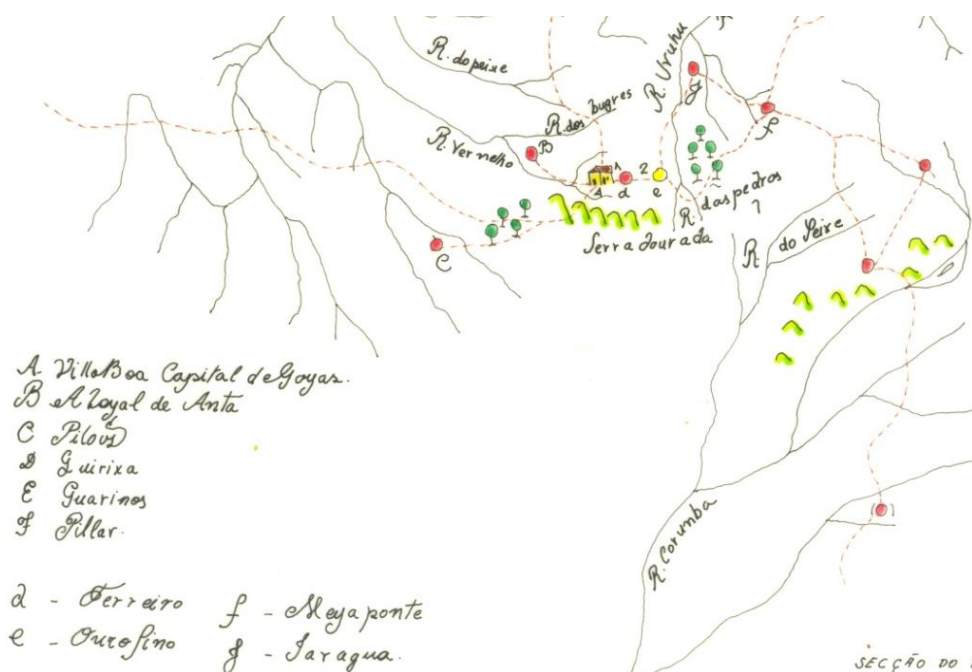 R. do peixe
R. Uruhu
R. dos bugres
R. Vermelho
B
A
1
2
d
e
f
g
C
R. das pedros
7
Serra dourada
R. do Peixe
R. Corumba
A. Villa Boa Capital de Goyaz.
B A Loyal de Anta
C Pilous
D Guirixa
E Guarinos
F Pillar.
d - Ferreiro
e - Ouro fino
f - Meya ponte
g - Jaragua.
SECÇÃO DO